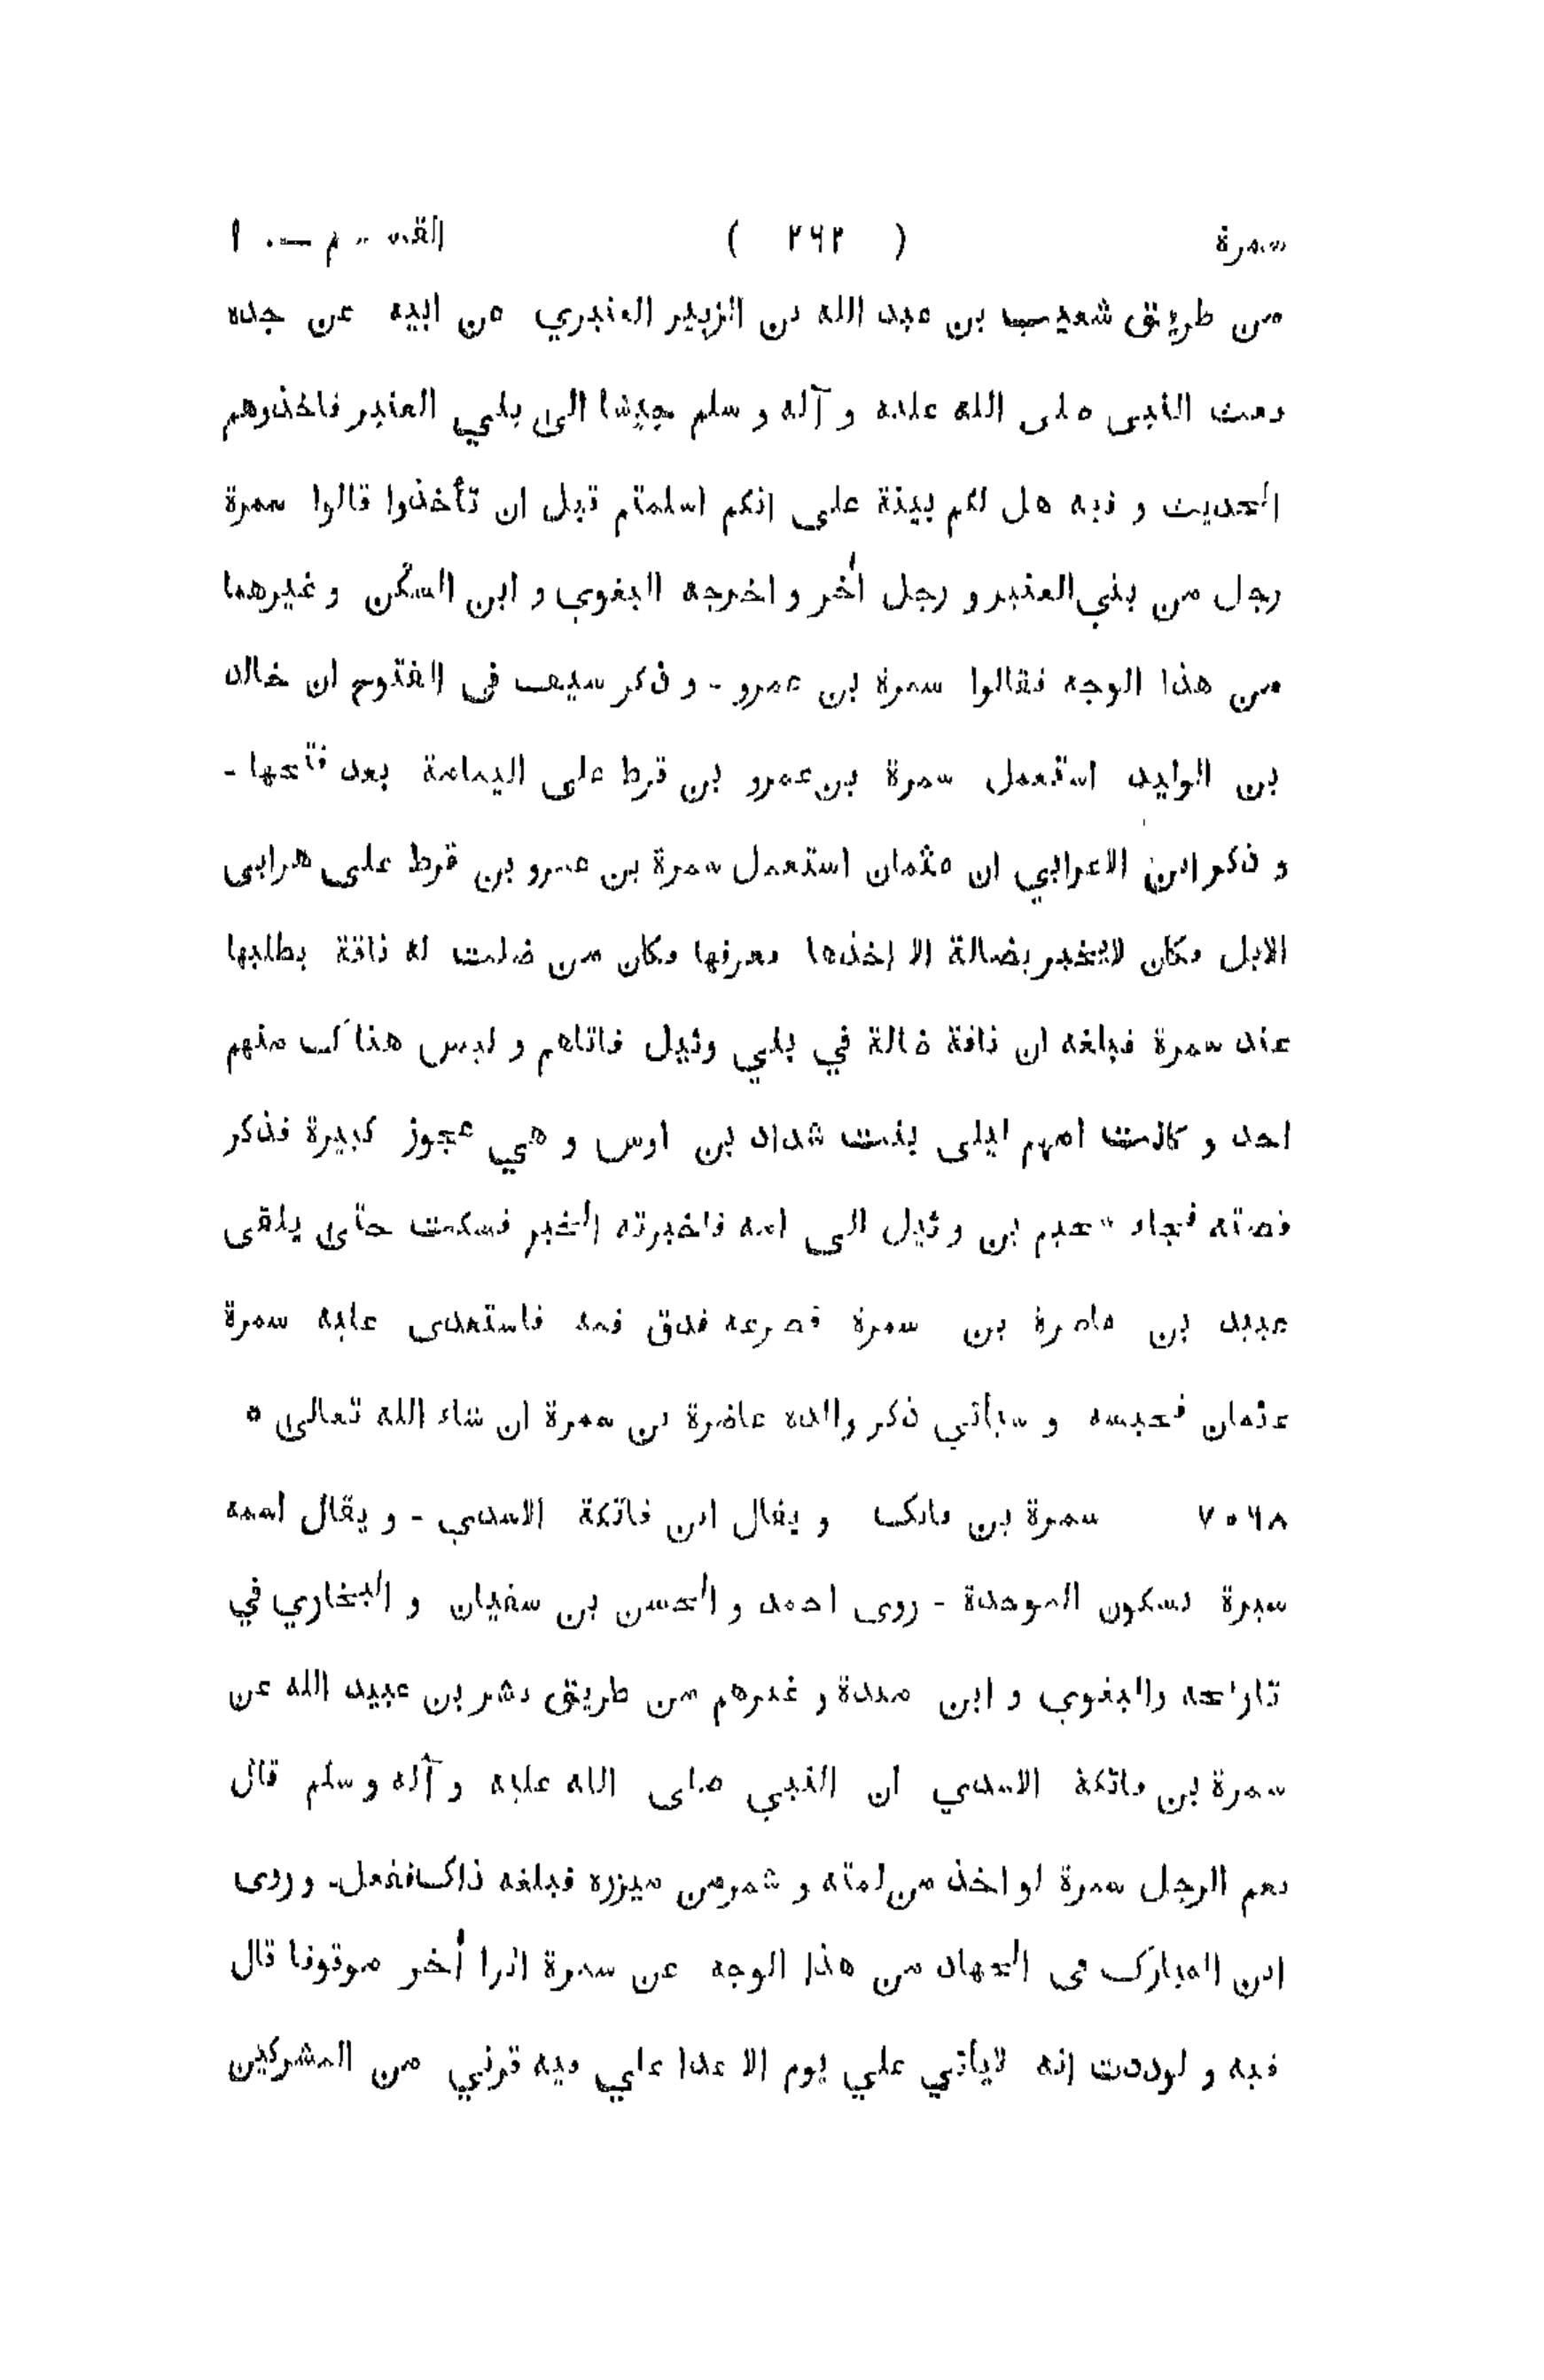 سمرة ( ٢٦٢ ) القسم ـ ١
من طريق شعيب بن عبد الله بن الزبير العنبري عن ابيه عن جده
بعث النبى صلى الله عليه و آله و سلم جيشا الى بني العنبر فاخذوهم
الحديث و فيه هل لكم بينة على انكم اسلمتم قبل ان تأخذوا قالوا سمرة
رجل من بني العنبر و رجل أخر و اخرجه البغوي و ابن السكن و غيرهما
من هذا الوجه فقالوا سمرة بن عمرو - و ذكر سيف فى الفتوح ان خالد
بن الوليد استعمل سمرة بن عمرو بن قرط على اليمامة بعد فتحها -
و ذكر ابن الاعرابي ان عثمان استعمل سمرة بن عمرو بن قرط على هرابى
الابل فكان لا يخبر بضالة الا اخذها فعرفها فكان من ضلت له ناقة يطلبها
عند سمرة فبلغه ان ناقة ضالة في بني وثيل فاتاهم و ليس هناك منهم
احد و كانت امهم ليلى بنت شداد بن اوس و هي عجوز كبيرة فذكر
قصته فجاء سحيم بن وثيل الى امه فاخبرته الخبر فسكت حتى يلقى
عبيد بن غاضرة بن سمرة فصرعه فدق فمه فاستعدى عليه سمرة
عثمان فحبسه و سيأتي ذكر والده غاضرة بن سمرة ان شاء الله تعالى ٥
٧٠٦٨ سمرة بن فاتك و يقال ابن فاتكة الاسدي - و يقال اسمه
سبرة بسكون الموحدة - روى احمد و الحسن بن سفيان و البخاري في
تاريخه والبغوي و ابن مندة و غيرهم من طريق بشر بن عبيد الله عن
سمرة بن فاتكة الاسدي ان النبي صلى الله عليه و آله و سلم قال
نعم الرجل سمرة لو اخذ من لمته و شمر من ميزره فبلغه ذاك ففعل - و روى
ابن المبارك فى الجهاد من هذا الوجه عن سمرة اثرا أخر موقوفا قال
فيه و لوددت انه لايأتي علي يوم الا عدا علي فيه قرني من المشركين